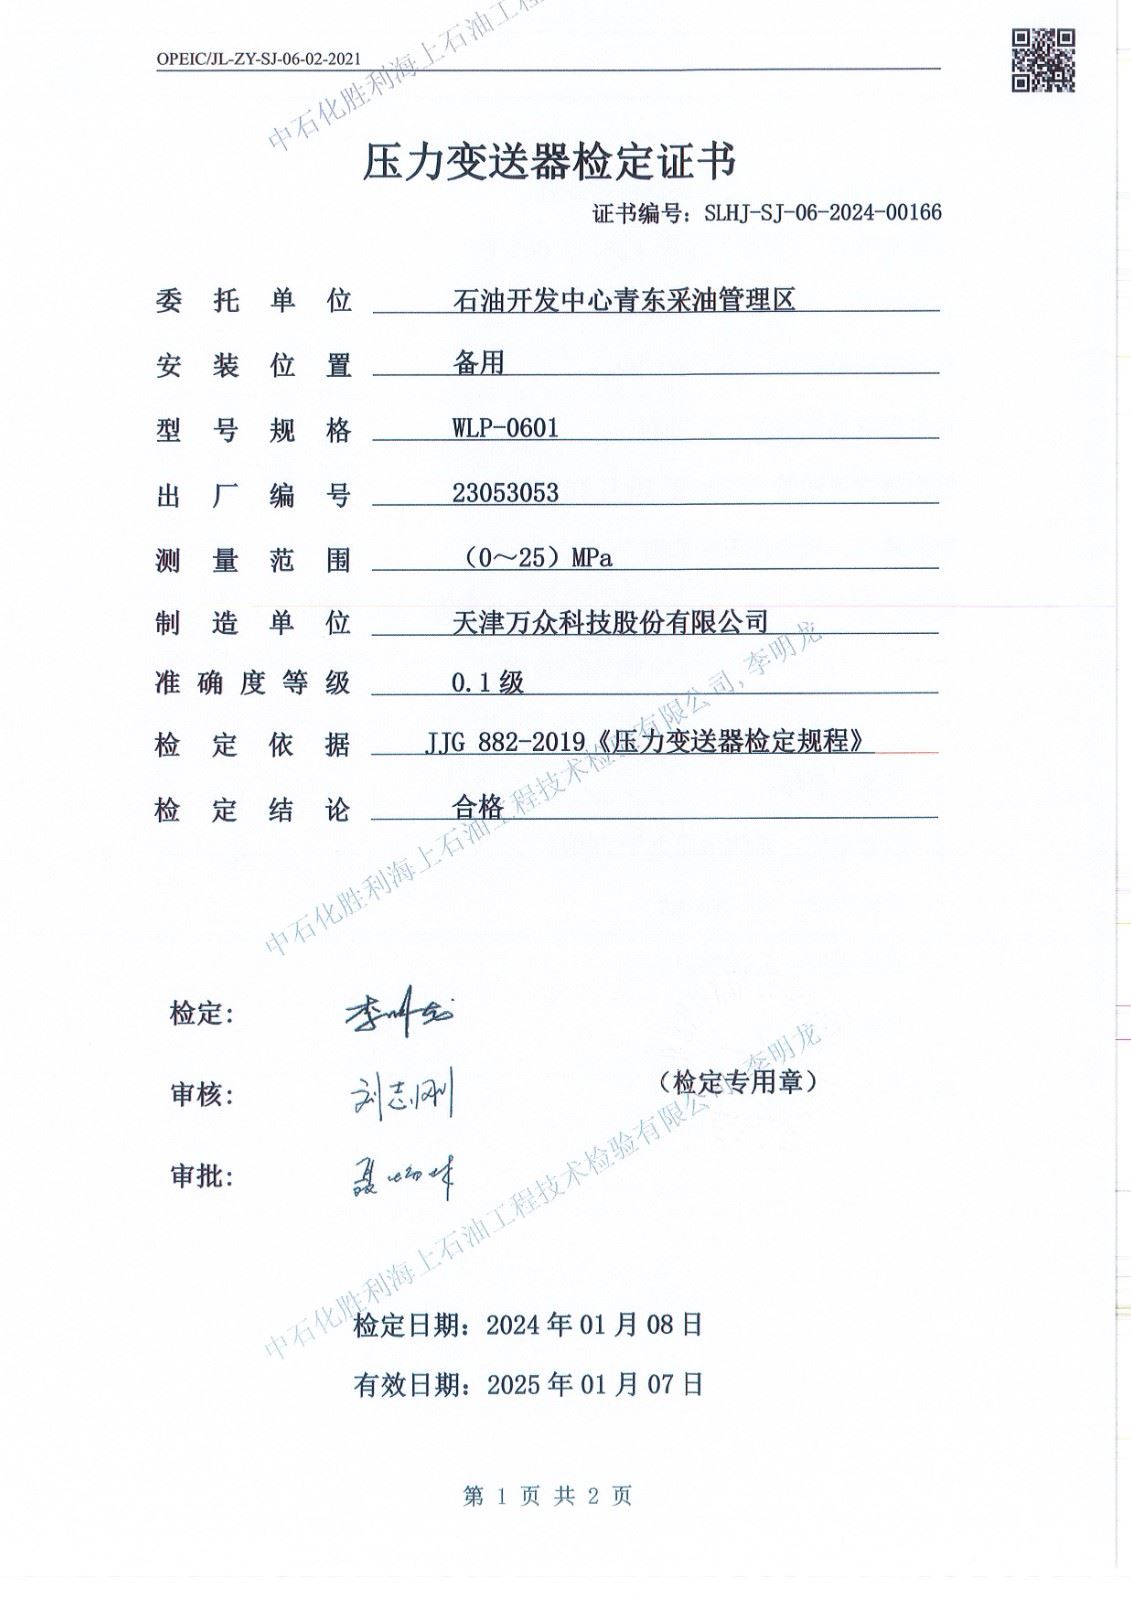 OPEIC/JL-ZY-SJ-06-02-2021
中石化胜利海上石油工程
压力变送器检定证书
证书编号：SLHJ-SJ-06-2024-00166
委托单位 石油开发中心青东采油管理区
安装位置 备用
型号规格 WLP-0601
出厂编号 23053053
测量范围 （0～25）MPa
制造单位 天津万众科技股份有限公司
准确度等级 0.1级
检定依据 JJG 882-2019《压力变送器检定规程》
检定结论 合格
中石化胜利海上石油工程技术检验有限公司,李明龙
检定： 李明龙
审核： 刘志刚
（检定专用章）
审批：
中石化胜利海上石油工程技术检验有限公司,李明龙
检定日期：2024年01月08日
有效日期：2025年01月07日
第 1 页 共 2 页